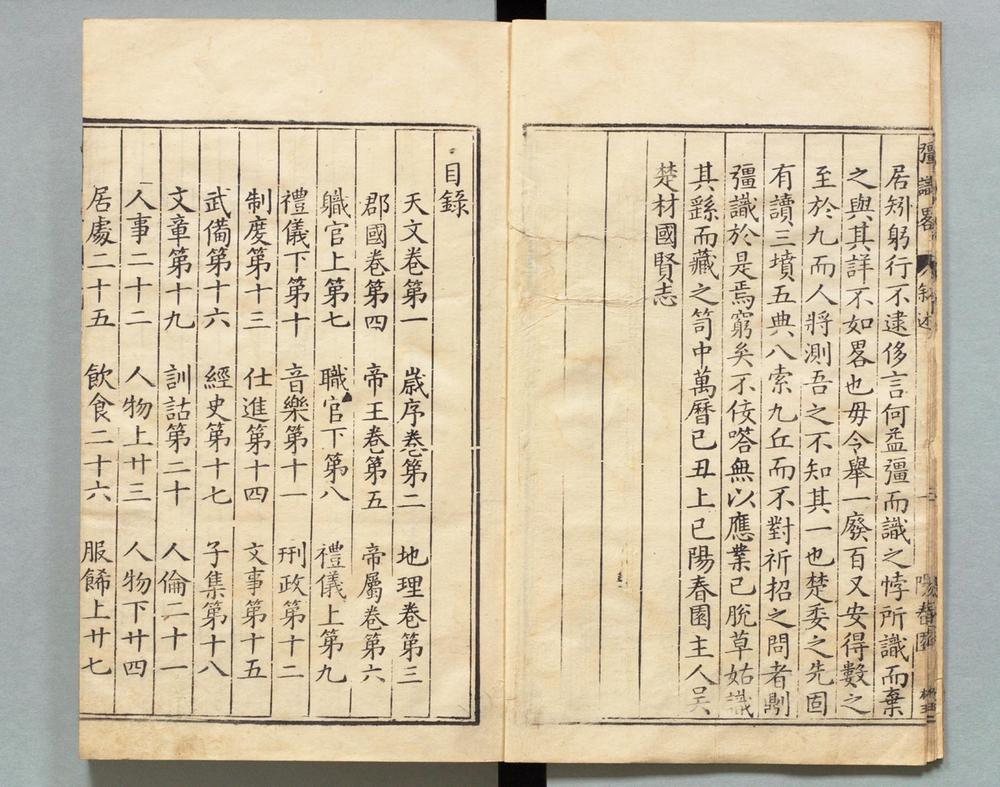 彊識畧
敘述
居矧躬行不逮侈言何益彊而識之悖所識而棄
之與其詳不如畧也毋令舉一廢百又安得數之
至於九而人將測吾之不知其一也楚委之先固
有讀三墳五典八索九丘而不對祈招之問者剬
彊識於是焉窮矣不佞嗒無以應業已脫草姑識
其繇而藏之笥中萬曆己丑上巳陽春園主人吴
楚材國賢志
目錄
天文卷第一 嵗序卷第二 地理卷第三
郡國卷第四 帝王卷第五 帝屬卷第六
職官上第七 職官下第八 禮儀上第九
禮儀下第十 音樂第十一 刑政第十二
制度第十三 仕進第十四 文事第十五
武備第十六 經史第十七 子集第十八
文章第十九 訓詁第二十 人倫二十一
人事二十二 人物上廿三 人物下廿四
居處二十五 飲食二十六 服餙上廿七